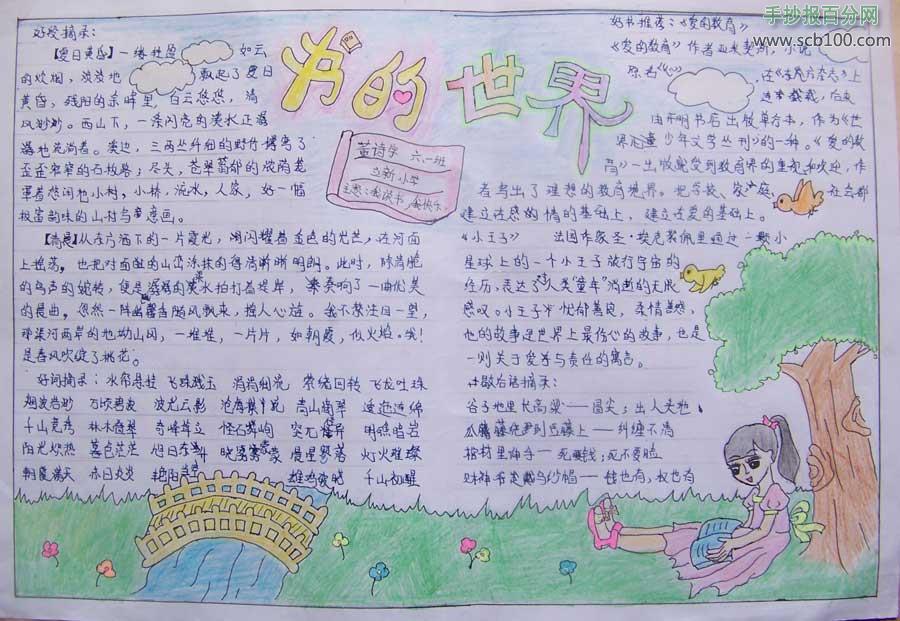 手抄报百分网
www.scb100.com
的世界
董诗宇 六.一班
立新小学
主题:我读书,我快乐.
好段摘录:
【夏日黄昏】一缕
如云
的炊烟,淡淡地
飘起了夏日
黄昏,残阳的余晖里,白云悠悠,清
风吵吵。西山下,一条闪亮的溪水正潺
潺地流淌着。溪边,三两丛纤细的野竹掩离了
歪歪窄窄的石板路;尽头,苍翠葡郁的浓荫笼
罩着悠闲的小村,小桥,流水,人家,好一幅
极富韵味的山村写意画。
【清晨】从东方洒下的一片霞光,闪闪耀着金色的光芒,在河面
上摇荡,也把对面的山峦涂抹的得清晰明朗。此时,除清脆
的鸟声的婉转,便是潺潺的溪水拍打着堤岸,演奏响了一曲优美
的晨曲。忽然一阵幽馨香随风飘来,撩人心旌。我不禁注目一望,
那溪河两岸的也坳山冈,一堆堆,一片片,如朝霞,似火焰。哦!
是春风吹绽了桃花。
好词摘录:水帘悬挂 飞珠溅玉 涓涓细流 萦绕回转 飞龙吐珠
烟波浩渺 万顷碧波 波光云影 沧海横 青山翡翠 逶迤连绵
千山竞秀 林木葱翠 奇峰耸立 怪石嶙峋 突兀怪异 明晓暗岩
阳光炽热 暮色茫茫 旭日东升 晓雾蒙蒙 晨星寥落 灯火璀璨
朝霞满天 赤日炎炎 艳阳 雄鸡破晓 千山初醒
好书推荐:《爱的教育》
《爱的教育》作者亚米契斯,小说
原名《心》
,在《东方杂志》上
连载,后夹
由开明书店出版单行本,作为《世
界少年文学丛刊》的一种。《爱的教
育》一出版就受到教育界的重视和欢迎,作
者写出了理想的教育世界。把学校、家庭、社会都
建立在感的情的基础上,建立在爱的基础上。
《小王子》 法国作家圣·埃克絮佩里通过一颗小
星球上的一个小王子旅行宇宙的
经历,表达了对人类"童年"消逝的无限
感叹。小王子 忧郁善良,柔情善感,
他的故事是世界上最伤心的故事,也是
一则关于爱与责任的寓言。
歇后语摘录:
谷子地里长高粱——冒尖;出人头地
瓜藤绕到豆藤上——纠缠不清
棺材里伸手——死要钱;死不要脸
财神爷戴乌纱帽——钱也有,权也有